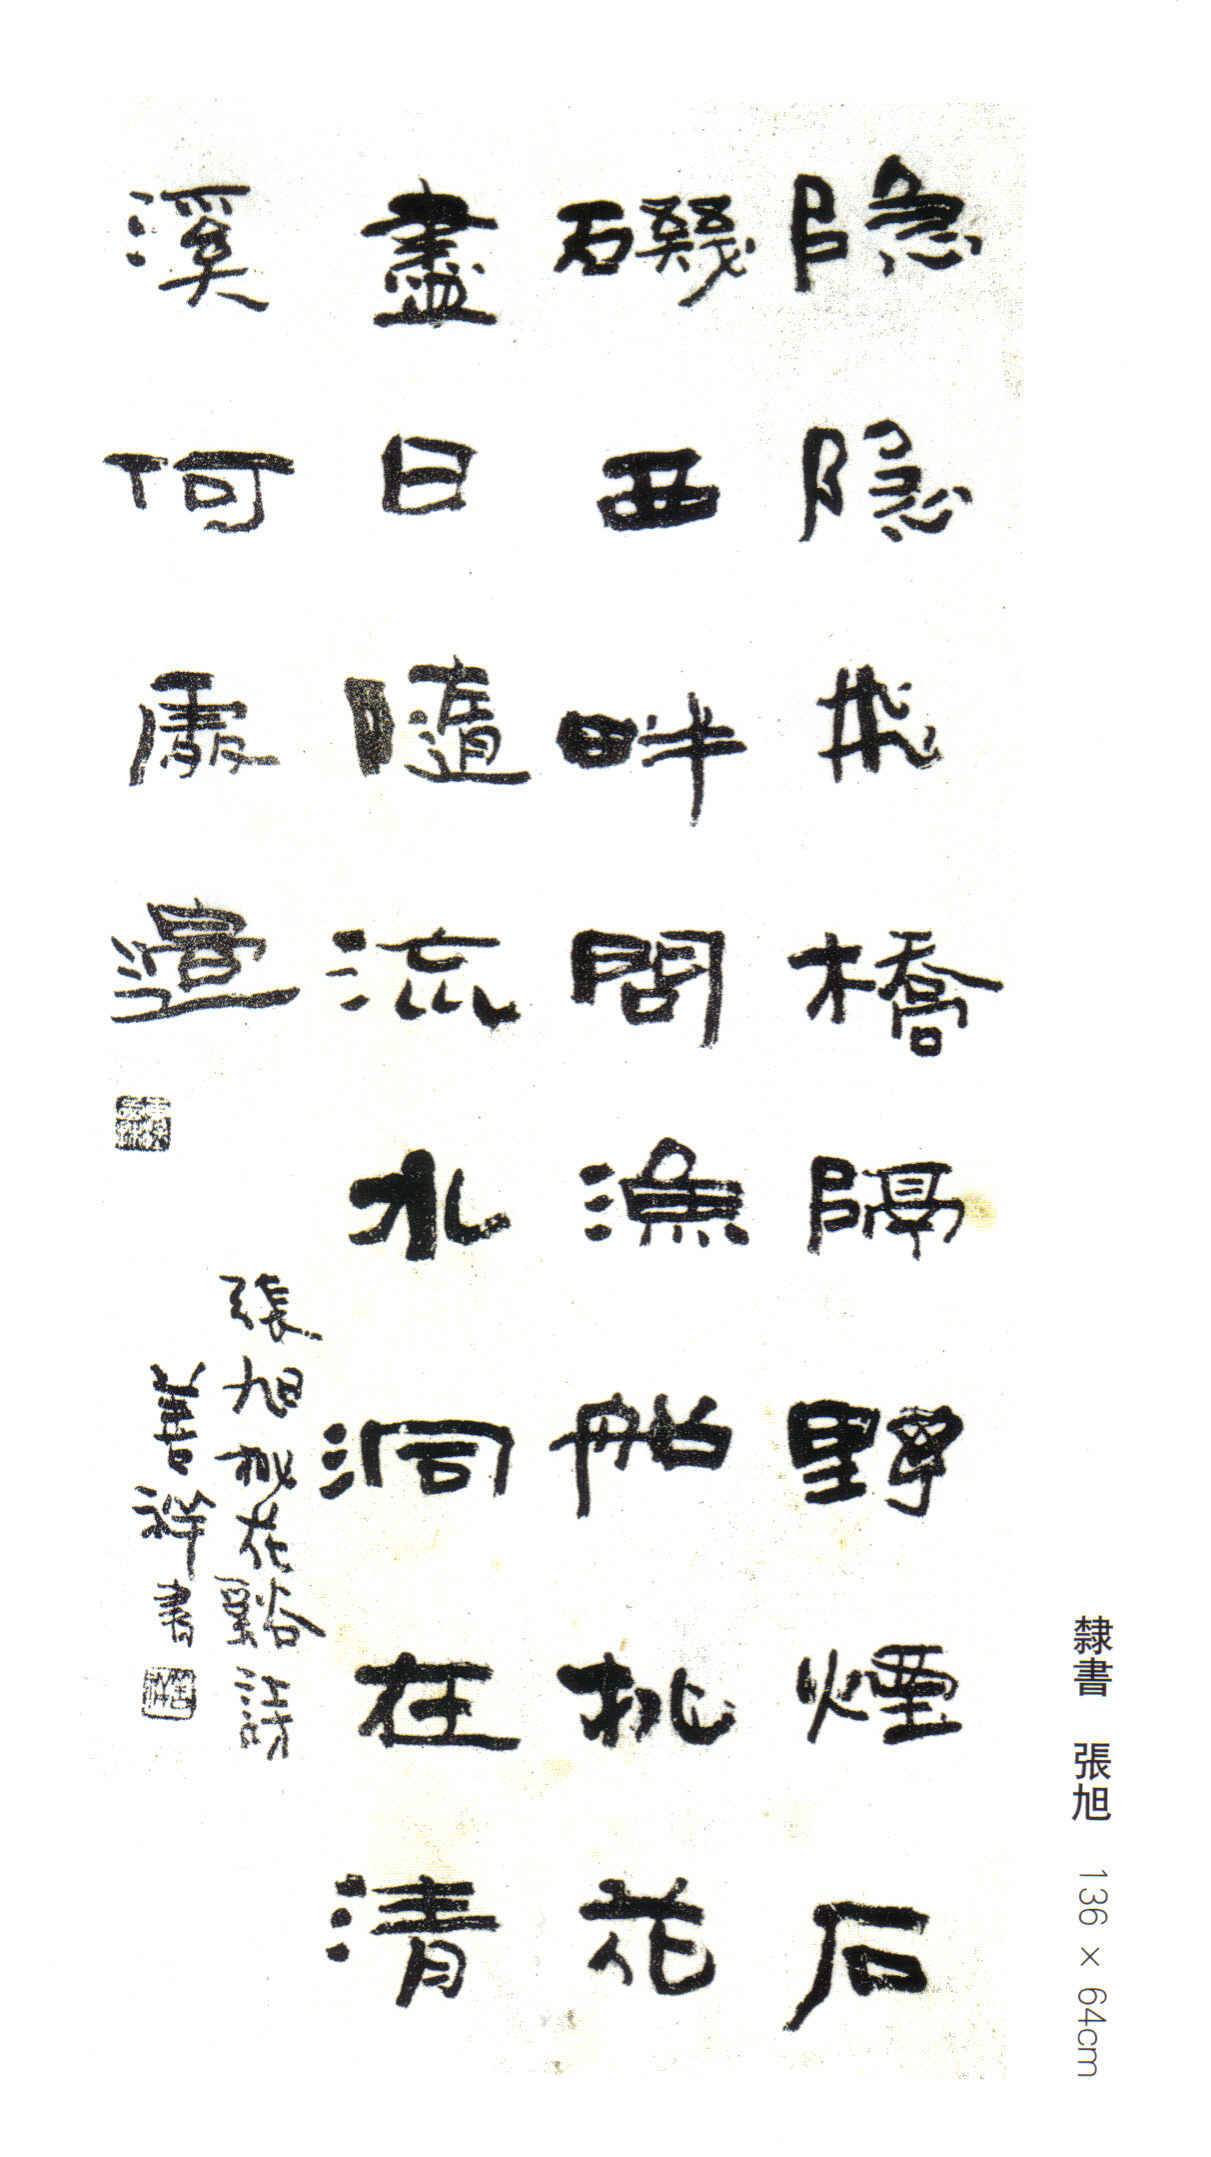 隐隐飛橋隔野煙石
磯西畔問漁船桃花
盡日隨流水洞在清
溪何處邊
張旭桃花谿詩
善祥書
隸書 張旭 136 × 64cm